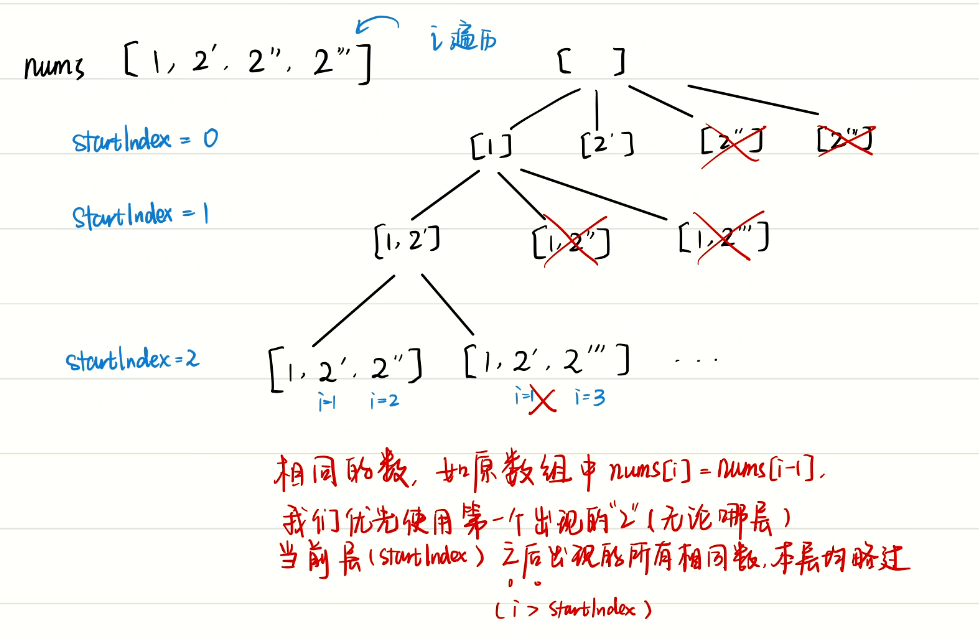 nums [1, 2′, 2″, 2‴]
i遍历
[ ]
startIndex = 0
[1] [2′] [2″] [2‴]
startIndex = 1
[1, 2′] [1, 2″] [1, 2‴]
startIndex = 2
[1, 2′, 2″] [1, 2′, 2‴] ...
i=1 i=2 i=1 i=3
相同的数, 如原数组中 nums[i] = nums[i-1],
我们优先使用第一个出现的"2" (无论哪层)
当前层 (startIndex) 之后出现的所有相同数, 本层均略过
(i > startIndex)